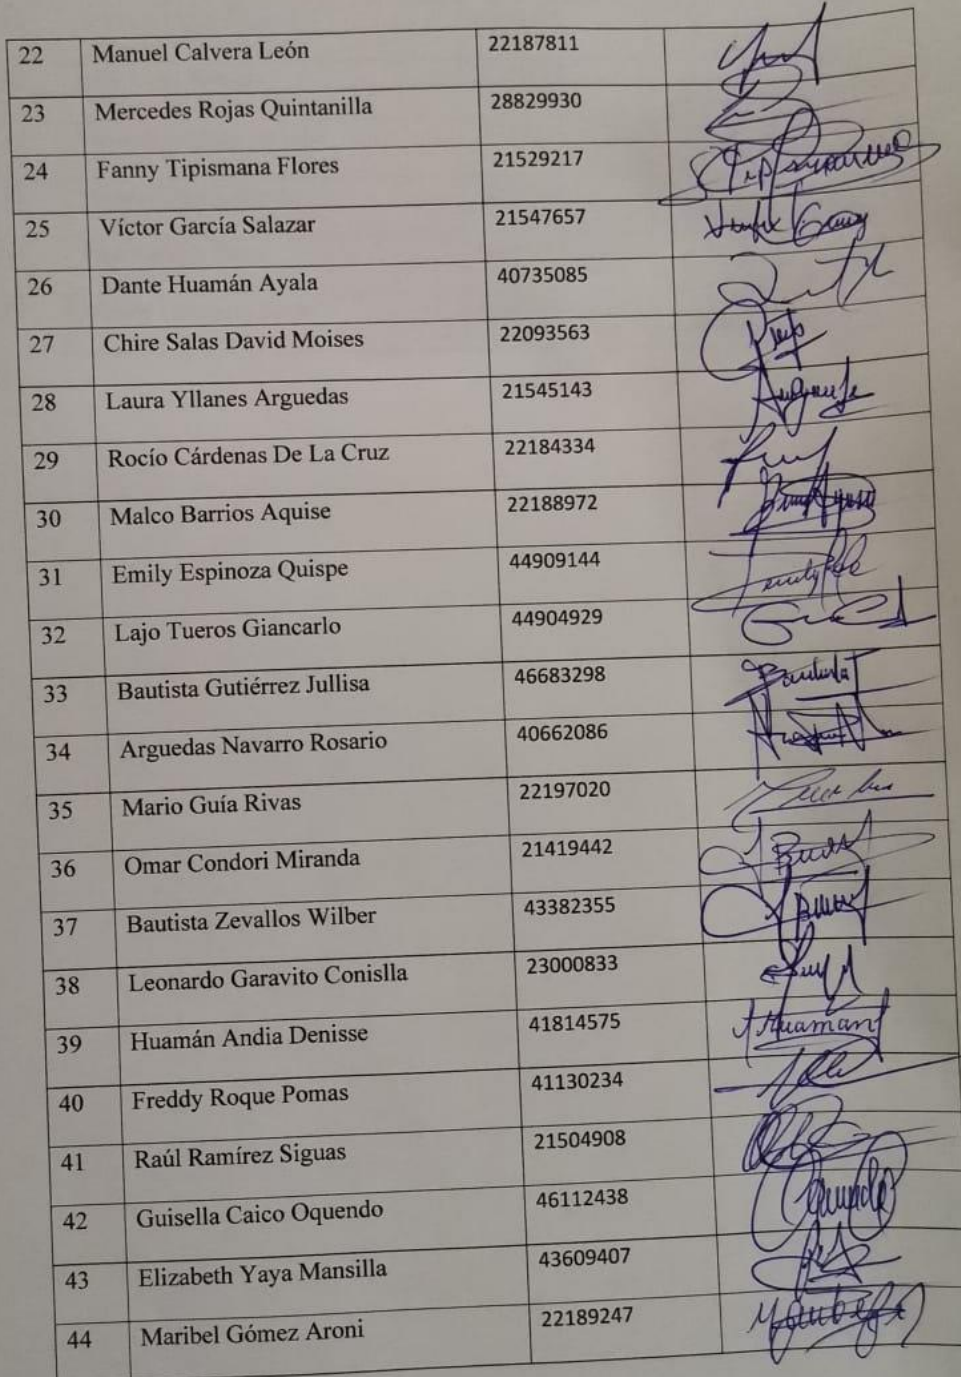 22 Manuel Calvera León 22187811
23 Mercedes Rojas Quintanilla 28829930
24 Fanny Tipismana Flores 21529217
25 Víctor García Salazar 21547657
26 Dante Huamán Ayala 40735085
27 Chire Salas David Moises 22093563
28 Laura Yllanes Arguedas 21545143
29 Rocío Cárdenas De La Cruz 22184334
30 Malco Barrios Aquise 22188972
31 Emily Espinoza Quispe 44909144
32 Lajo Tueros Giancarlo 44904929
33 Bautista Gutiérrez Jullisa 46683298
34 Arguedas Navarro Rosario 40662086
35 Mario Guía Rivas 22197020
36 Omar Condori Miranda 21419442
37 Bautista Zevallos Wilber 43382355
38 Leonardo Garavito Conislla 23000833
39 Huamán Andia Denisse 41814575 Huaman
40 Freddy Roque Pomas 41130234
41 Raúl Ramírez Siguas 21504908
42 Guisella Caico Oquendo 46112438
43 Elizabeth Yaya Mansilla 43609407
44 Maribel Gómez Aroni 22189247